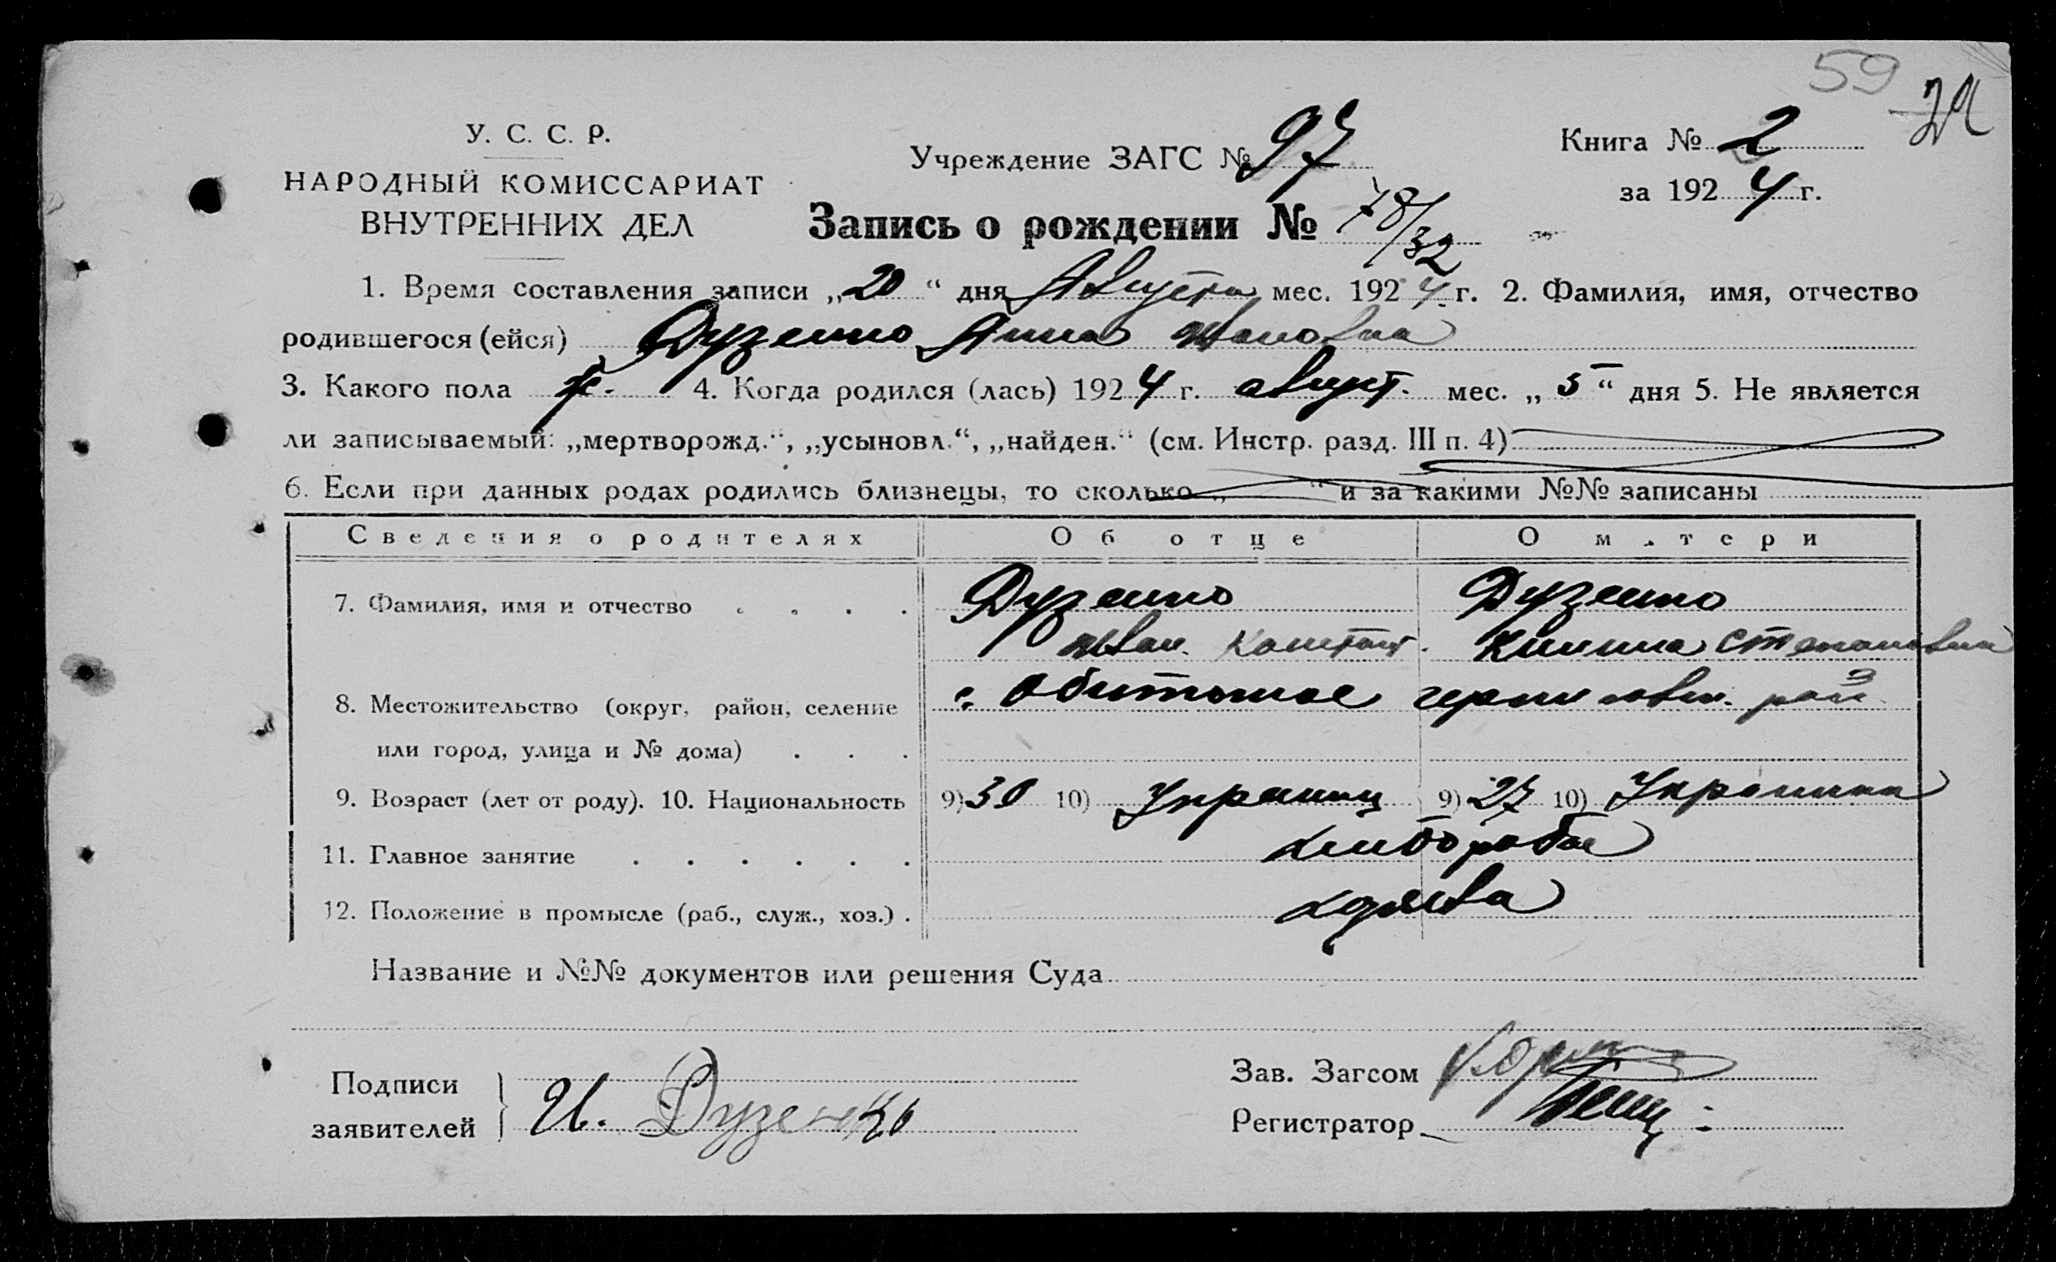 59
У. С. С. Р.
НАРОДНЫЙ КОМИССАРИАТ
ВНУТРЕННИХ ДЕЛ
Учреждение ЗАГС № 97
Книга № 2
за 1924 г.
Запись о рождении № 78/32
1. Время составления записи „20“ дня Августа мес. 1924 г. 2. Фамилия, имя, отчество
родившегося (ейся) Дузенко Анна Ивановна
3. Какого пола ж. 4. Когда родился (лась) 1924 г. август. мес. „5“ дня 5. Не является
ли записываемый: „мертворожд.“, „усыновл.“, „найден.“ (см. Инстр. разд. III п. 4)
6. Если при данных родах родились близнецы, то сколько „ “ и за какими №№ записаны
Сведения о родителях Об отце О матери
7. Фамилия, имя и отчество . . . . Дузенко Дузенко
Иван Констант. Килина Степановна
8. Местожительство (округ, район, селение с. Обиточное рай
или город, улица и № дома) . . .
9. Возраст (лет от роду). 10. Национальность 9) 30 10) Украинц 9) 27 10) Украинка
11. Главное занятие . . . . . . хлибороба
12. Положение в промысле (раб., служ., хоз.) . хозяева
Название и №№ документов или решения Суда
Подписи
заявителей } И. Дузенко
Зав. Загсом
Регистратор